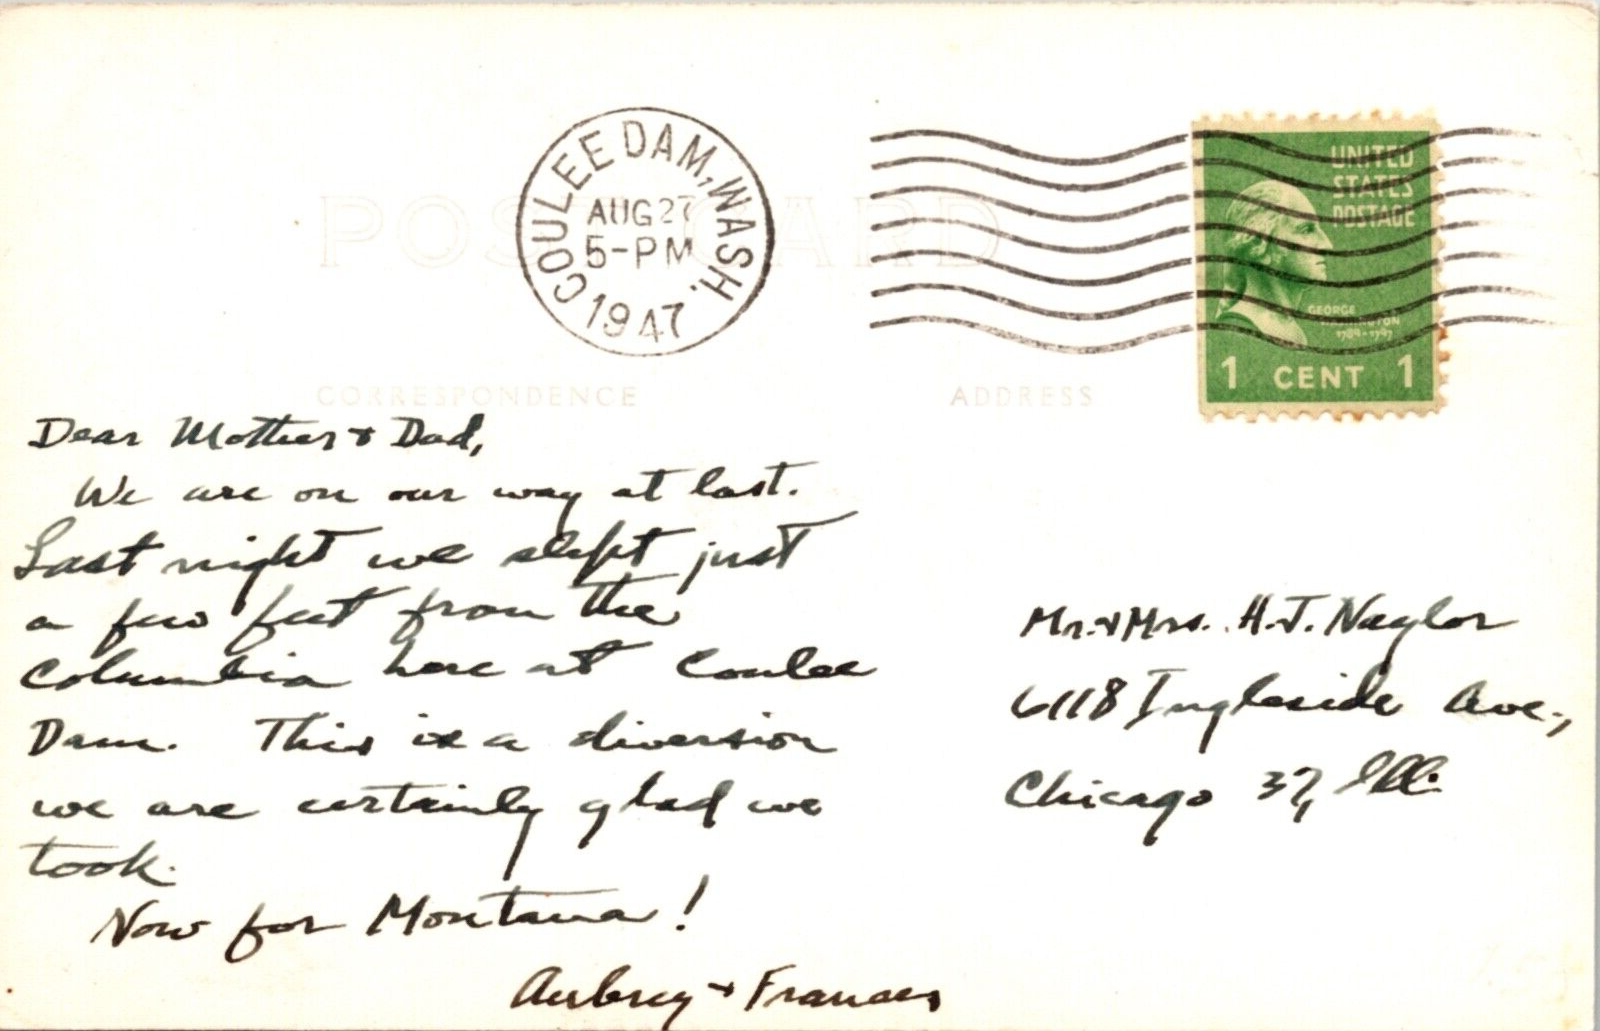 POST CARD
COULEE DAM, WASH.
AUG 27
5-PM
1947
UNITED
STATES
POSTAGE
GEORGE
WASHINGTON
1789-1797
1 CENT 1
CORRESPONDENCE
ADDRESS
Dear Mother + Dad,
We are on our way at last.
Last night we slept just
a few feet from the
Columbia here at Coulee
Dam. This is a diversion
we are certainly glad we
took.
Now for Montana!
Aubrey + Frances
Mr. + Mrs. H. J. Naylor
6118 Ingleside Ave.,
Chicago 37, Ill.